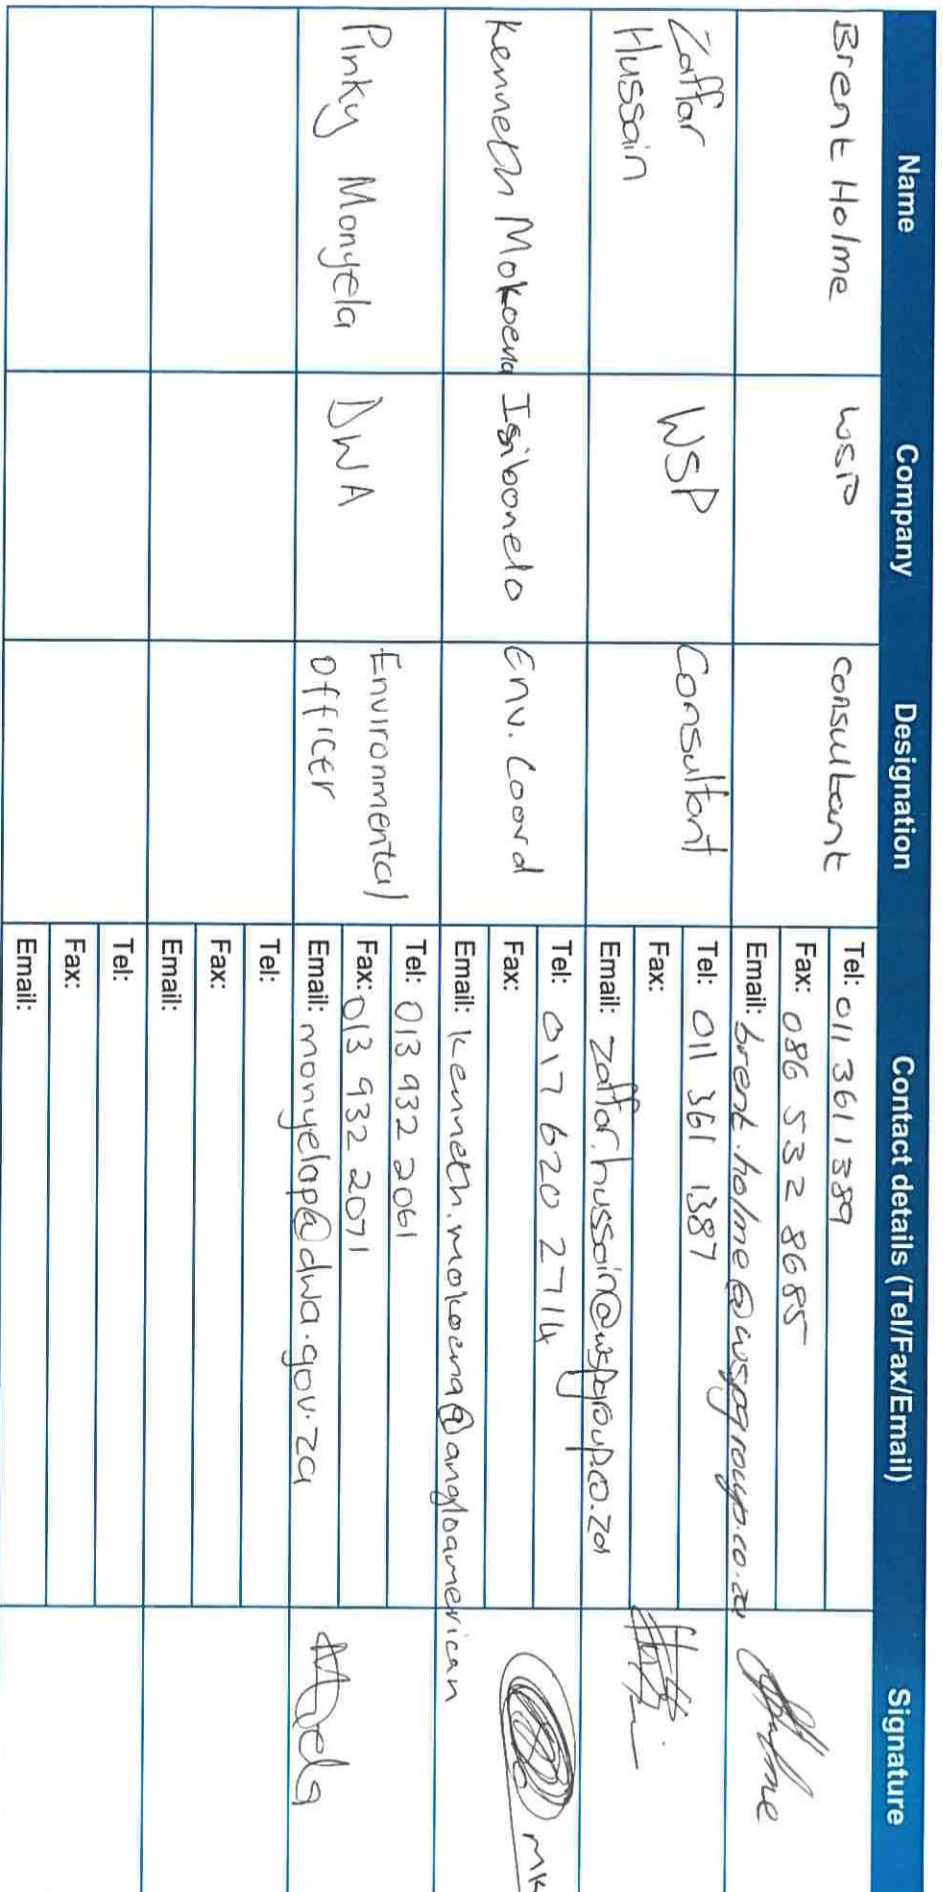 Name Company Designation Contact details (Tel/Fax/Email) Signature
Brent Holme WSP consultant Tel: 011 361 1389
Fax: 086 532 8685
Email: brent.holme@wspgroup.co.za
Zaffar
Hussain WSP Consultant Tel: 011 361 1387
Fax:
Email: zaffar.hussain@wspgroup.co.za
Kenneth Mokoena Isibonelo Env. Coord Tel: 017 620 2714
Fax:
Email: kenneth.mokoena@angloamerican
MK
Pinky Monyela DWA Environmental
Officer Tel: 013 932 2061
Fax: 013 932 2071
Email: monyelap@dwa.gov.za
Tel:
Fax:
Email:
Tel:
Fax:
Email: